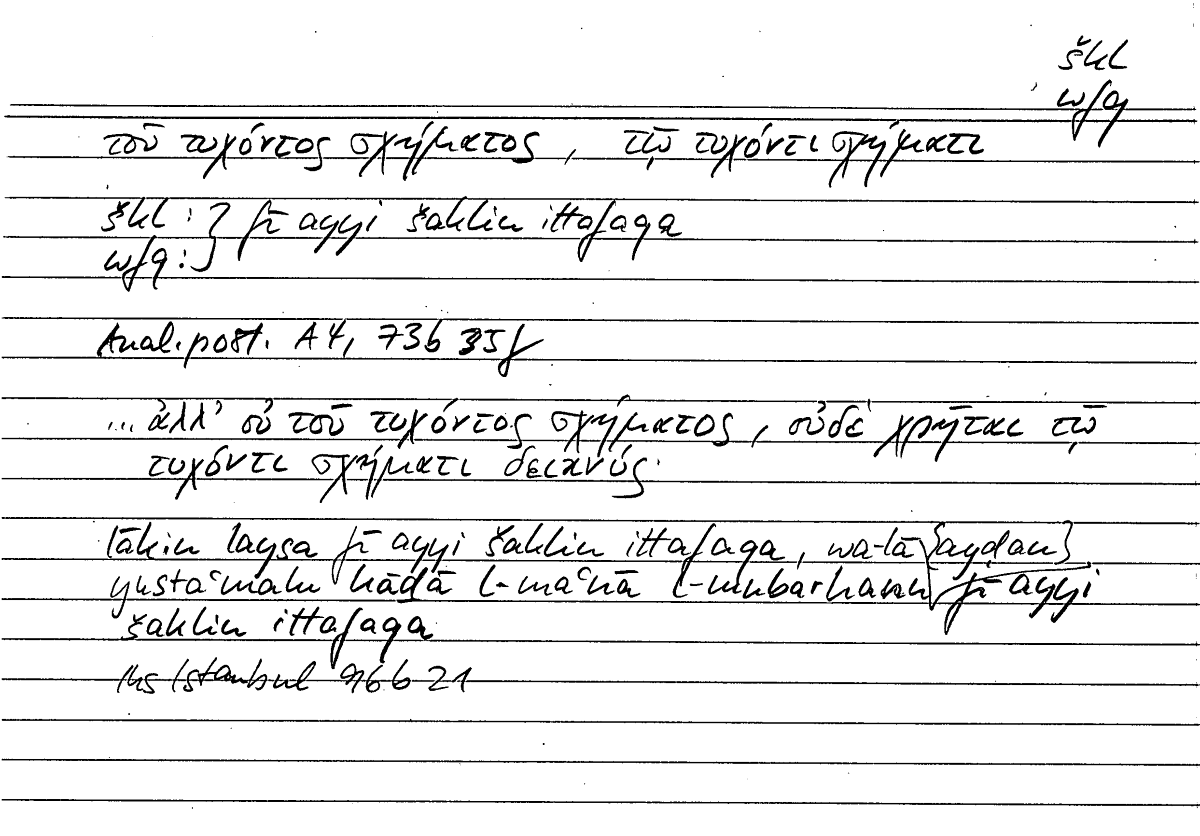 škl
wfq
τοῦ τυχόντος σχήματος, τῷ τυχόντι σχήματι
škl : } fī ayyi šaklin ittafaqa
wfq :
Anal. post. A 4, 73b 35f
... ἀλλ᾽ οὐ τοῦ τυχόντος σχήματος, οὐδὲ χρῆται τῷ
τυχόντι σχήματι δεικνύς·
lākin laysa fī ayyi šaklin ittafaqa, wa-lā {ayḍan}
yustaʿmalu hāḏā l-maʿnā l-mubarhanu fī ayyi
šaklin ittafaqa
Hs Istanbul 96b 21